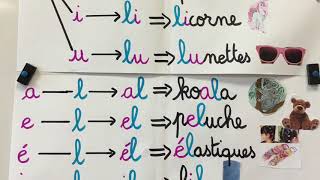 i → li ⇒ licorne
u → lu ⇒ lunettes
a → l → al ⇒ koala
e → l → el ⇒ peluche
é → l → él ⇒ élastiques